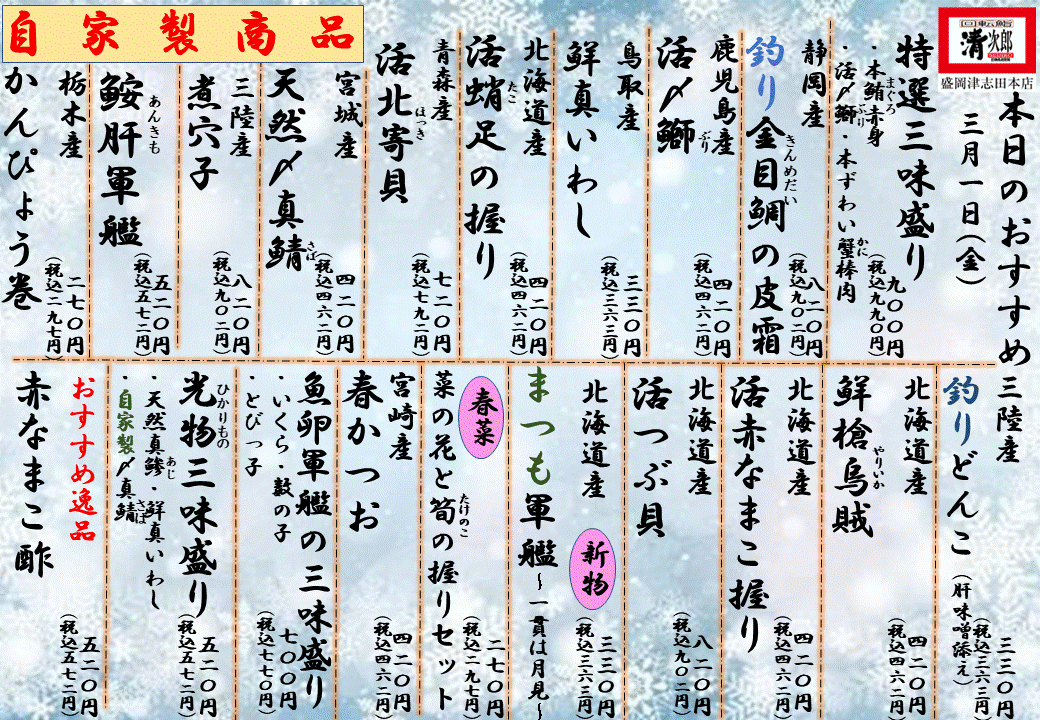 回転鮨
清次郎
盛岡津志田本店
本日のおすすめ
三月一日（金）
特選三味盛り
・本鮪赤身
まぐろ
・活〆鰤・本ずわい蟹棒肉
ぶり
かに
九〇〇円
（税込九九〇円）
静岡産
釣り金目鯛の皮霜
きんめだい
八二〇円
（税込九〇二円）
鹿児島産
活〆鰤
ぶり
四二〇円
（税込四六二円）
鳥取産
鮮真いわし
三三〇円
（税込三六三円）
北海道産
活蛸足の握り
たこ
四二〇円
（税込四六二円）
青森産
活北寄貝
ほっき
七二〇円
（税込七九二円）
自家製商品
宮城産
天然〆真鯖
さば
四二〇円
（税込四六二円）
三陸産
煮穴子
八二〇円
（税込九〇二円）
鮟肝軍艦
あんきも
五二〇円
（税込五七二円）
栃木産
かんぴょう巻
二七〇円
（税込二九七円）
三陸産
釣りどんこ（肝味噌添え）
三三〇円
（税込三六三円）
北海道産
鮮槍烏賊
やりいか
四二〇円
（税込四六二円）
北海道産
活赤なまこ握り
四二〇円
（税込四六二円）
北海道産
活つぶ貝
八二〇円
（税込九〇二円）
北海道産
新物
まつも軍艦～一貫は月見～
三三〇円
（税込三六三円）
春菜
菜の花と筍の握りセット
たけのこ
二七〇円
（税込二九七円）
宮崎産
春かつお
四二〇円
（税込四六二円）
魚卵軍艦の三味盛り
・いくら・数の子
・とびっ子
七〇〇円
（税込七七〇円）
光物三味盛り
ひかりもの
・天然真鯵・鮮真いわし
あじ
・自家製〆真鯖
さば
五二〇円
（税込五七二円）
おすすめ逸品
赤なまこ酢
五二〇円
（税込五七二円）